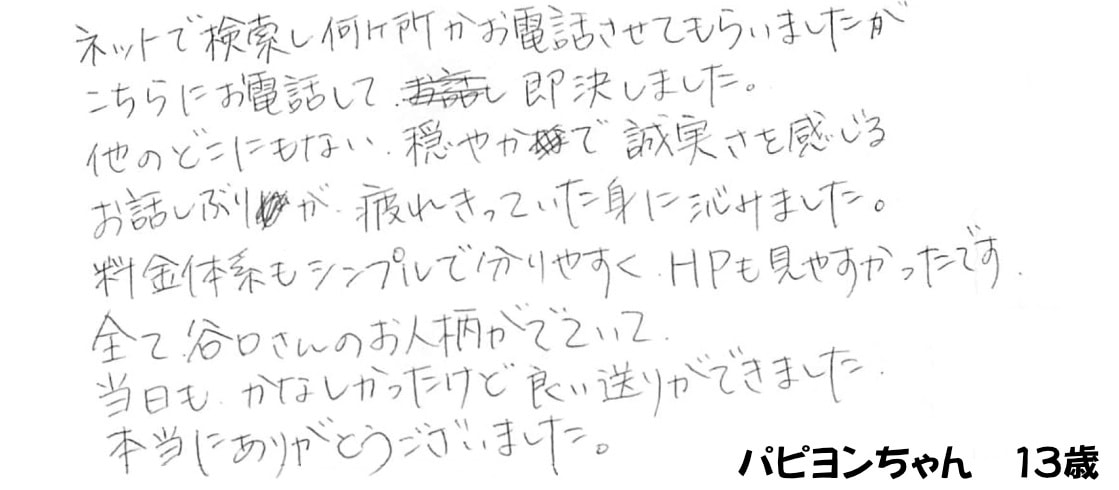 ネットで検索し何ヶ所かお電話させてもらいましたが
こちらにお電話して、お話し 即決しました。
他のどこにもない、穏やかで誠実さを感じる
お話しぶりが、疲れきっていた身に沁みました。
料金体系もシンプルで分りやすく、HPも見やすかったです.
全て、谷口さんのお人柄がでていて、
当日も、かなしかったけど良い送りができました.
本当にありがとうございました。
パピヨンちゃん 13歳